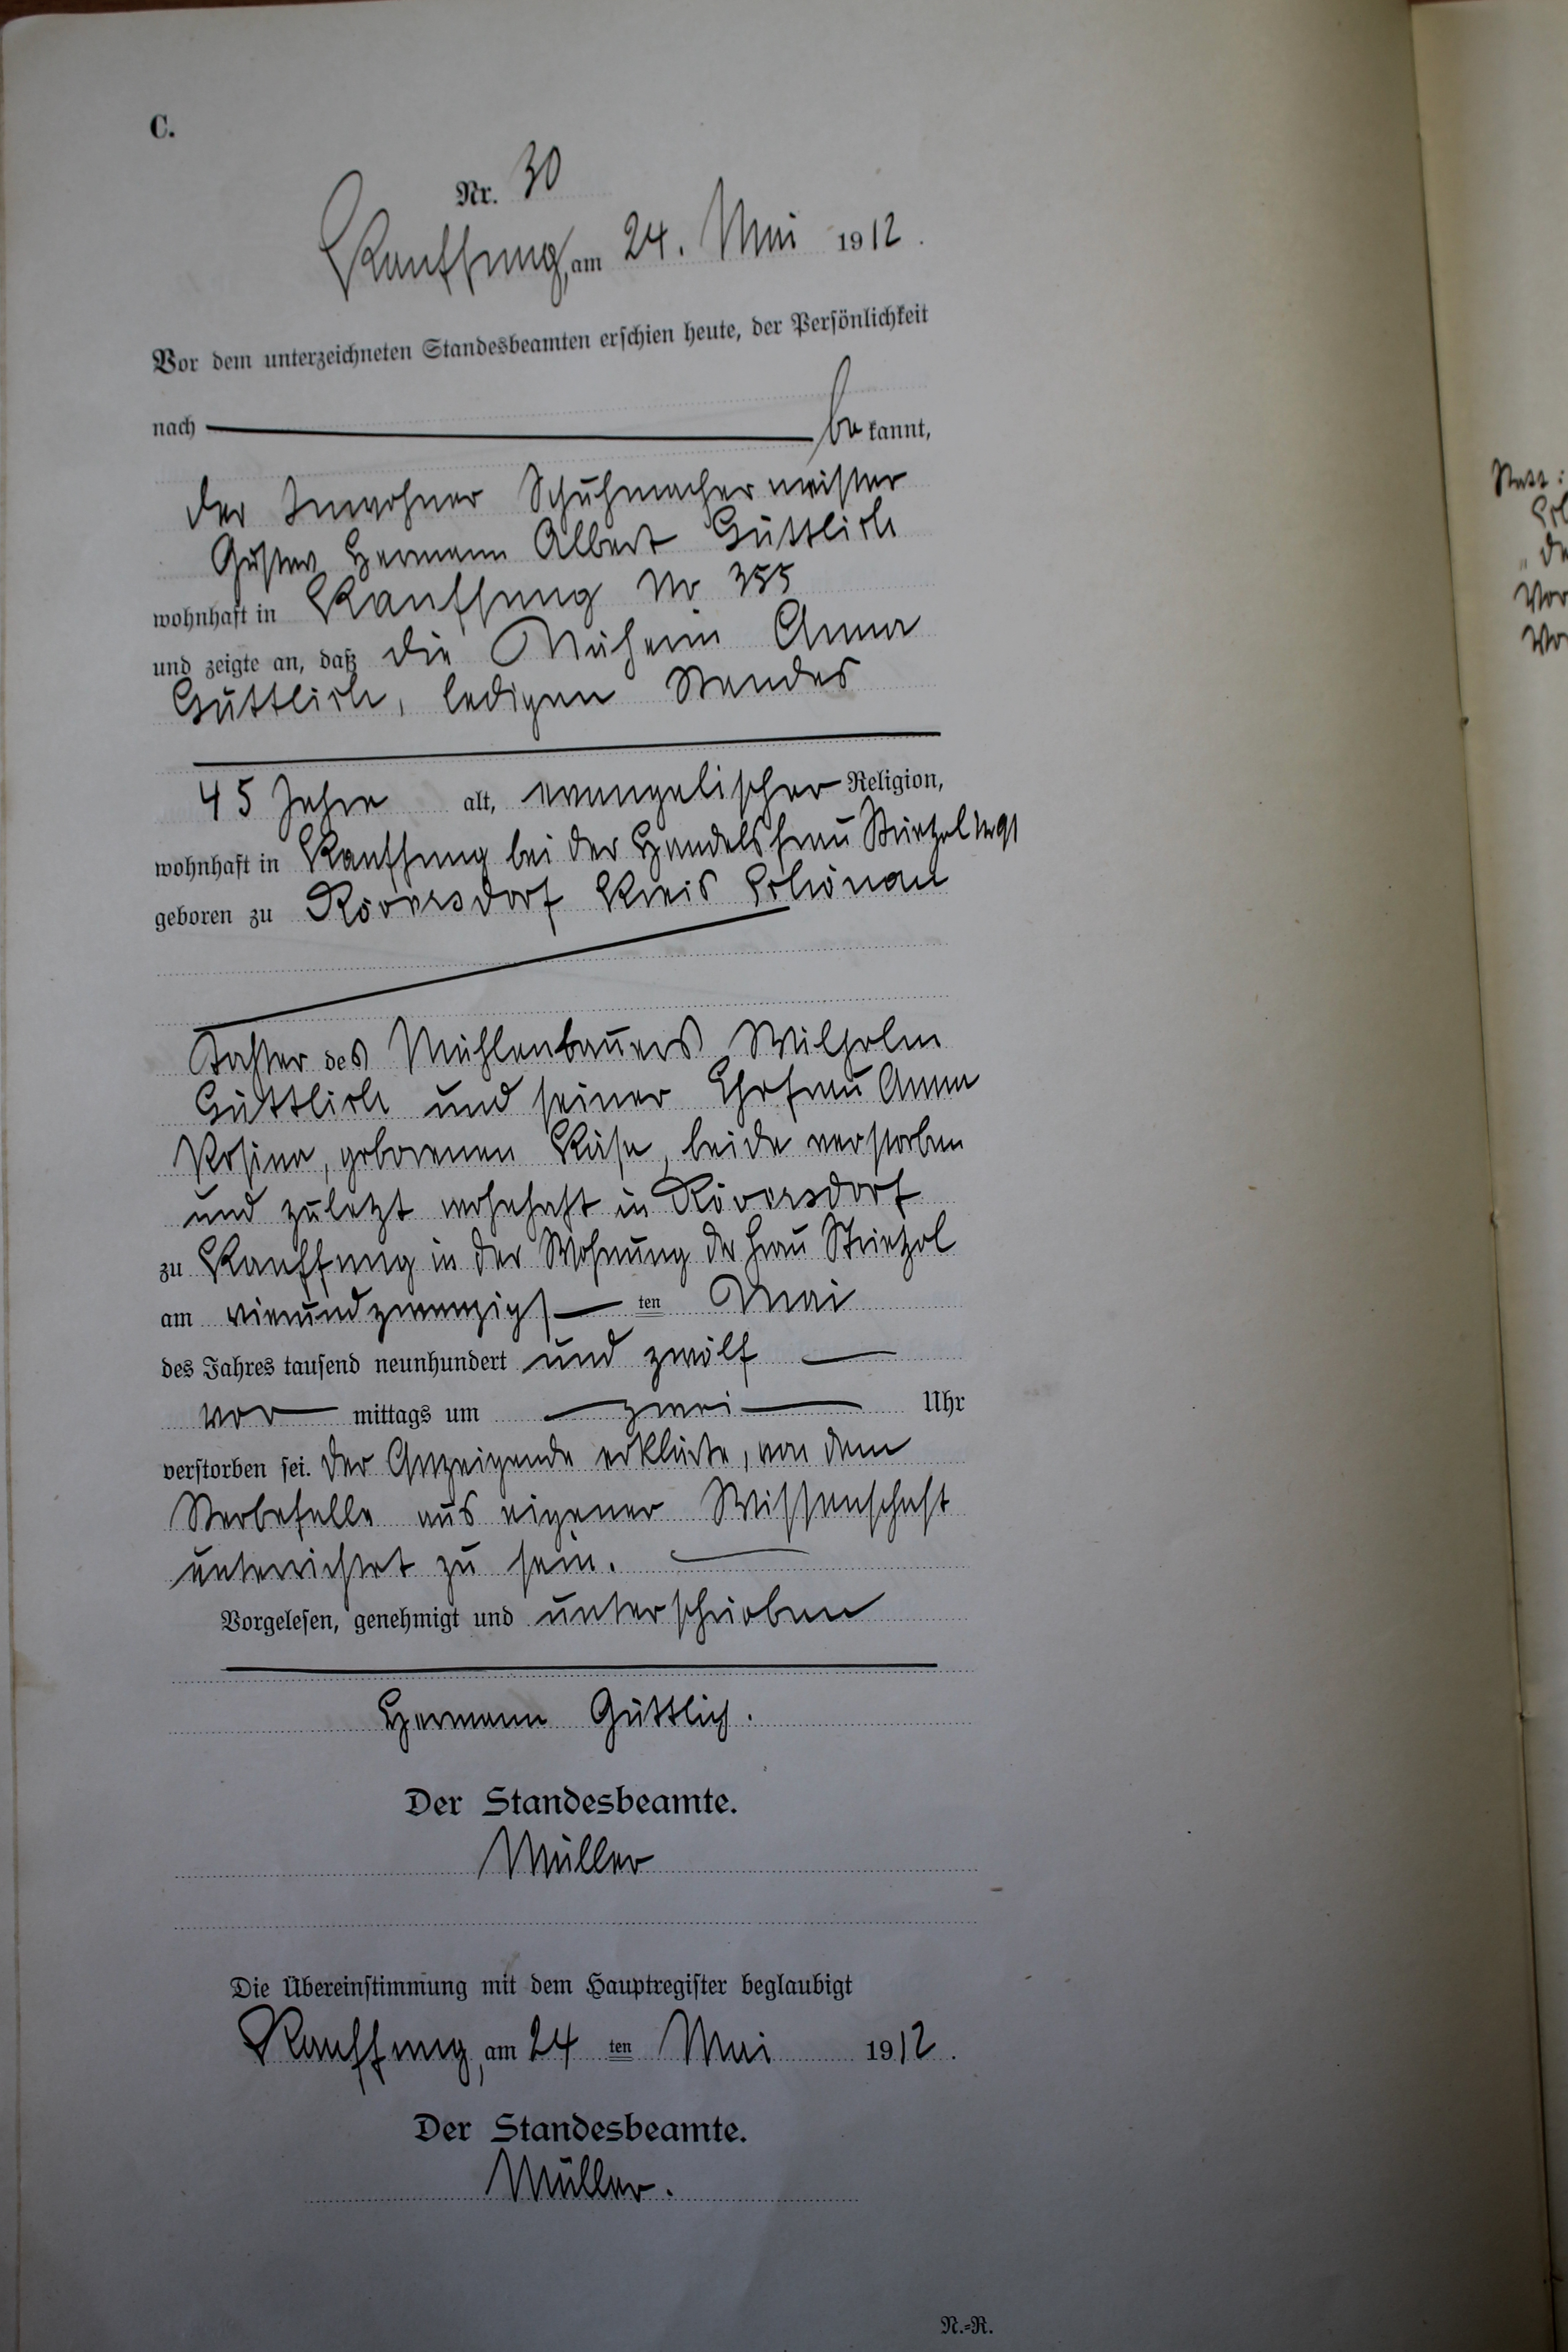 C.
Nr. 30
Kauffung, am 24. Mai 1912.
Vor dem unterzeichneten Standesbeamten erschien heute, der Persönlichkeit
nach be kannt,
der Inwohner Schuhmachermeister
Gustav Hermann Albert Güttlich
wohnhaft in Kauffung Nr 355
und zeigte an, daß die Näherin Anna
Güttlich, ledigen Standes
45 Jahre alt, evangelischer Religion,
wohnhaft in Kauffung bei der Handelsfrau Strietzel Nr 91
geboren zu Röversdorf Kreis Schönau
Tochter des Mühlenbauers Wilhelm
Güttlich und seiner Ehefrau Anna
Rosina, geborenen Käse, beide verstorben
und zuletzt wohnhaft in Röversdorf
zu Kauffung in der Wohnung der Frau Strietzel
am vierundzwanzigsten Mai
des Jahres tausend neunhundert und zwölf
vor mittags um zwei Uhr
verstorben sei. Der Anzeigende erklärte, von dem
Sterbefalle aus eigener Wissenschaft
unterrichtet zu sein.
Vorgelesen, genehmigt und unterschrieben
Hermann Güttlich.
Der Standesbeamte.
Müller
Die Übereinstimmung mit dem Hauptregister beglaubigt
Kauffung, am 24 ten Mai 1912.
Der Standesbeamte.
Müller.
N.=R.